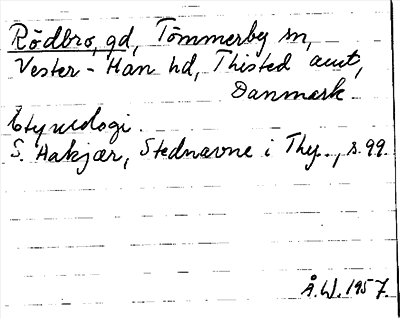 Rödbro, gd, Tömmerby sn,
Vester-Han hd, Thisted amt,
Danmark
Etymologi.
S. Hakjær, Stednavne i Thy., s. 99.
Å.W. 1957.